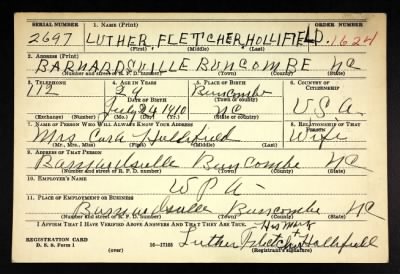 SERIAL NUMBER 1. NAME (Print) ORDER NUMBER
2697 LUTHER FLETCHER HOLLIFIELD 1624
(First) (Middle) (Last)
2. ADDRESS (Print)
BARNARDSVILLE BUNCOMBE NC
(Number and street or R. F. D. number) (Town) (County) (State)
3. TELEPHONE 4. AGE IN YEARS 5. PLACE OF BIRTH 6. COUNTRY OF CITIZENSHIP
112 Buncombe
DATE OF BIRTH (Town or county)
July 1910 NC U.S.A
(Exchange) (Number) (Mo.) (Day) (Yr.) (State or country)
7. NAME OF PERSON WHO WILL ALWAYS KNOW YOUR ADDRESS 8. RELATIONSHIP OF THAT PERSON
Mrs Cora Hollifield Wife
(Mr., Mrs., Miss) (First) (Middle) (Last)
9. ADDRESS OF THAT PERSON
Barnardsville Buncombe NC
(Number and street or R. F. D. number) (Town) (County) (State)
10. EMPLOYER'S NAME
WPA
11. PLACE OF EMPLOYMENT OR BUSINESS
Barnardsville Buncombe NC
(Number and street or R. F. D. number) (Town) (County) (State)
I AFFIRM THAT I HAVE VERIFIED ABOVE ANSWERS AND THAT THEY ARE TRUE. His Mark
REGISTRATION CARD Luther Fletcher + Hollifield
D. S. S. Form 1 (over) 16—17105 (Registrant's signature)